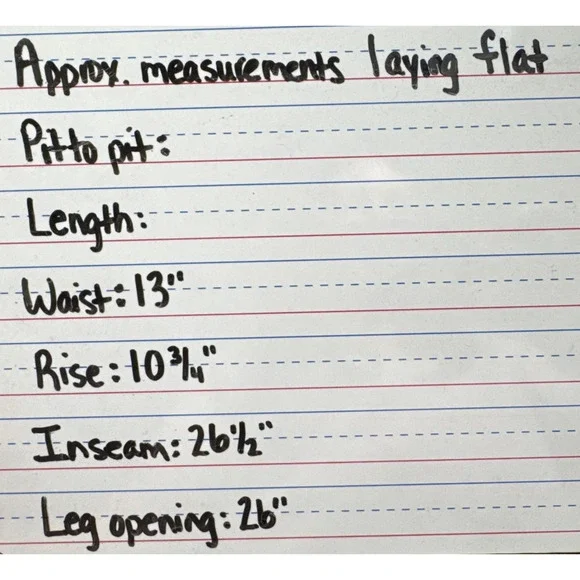 Approx. measurements laying flat
Pit to pit:
Length:
Waist: 13"
Rise: 10 3/4"
Inseam: 26 1/2"
Leg opening: 26"